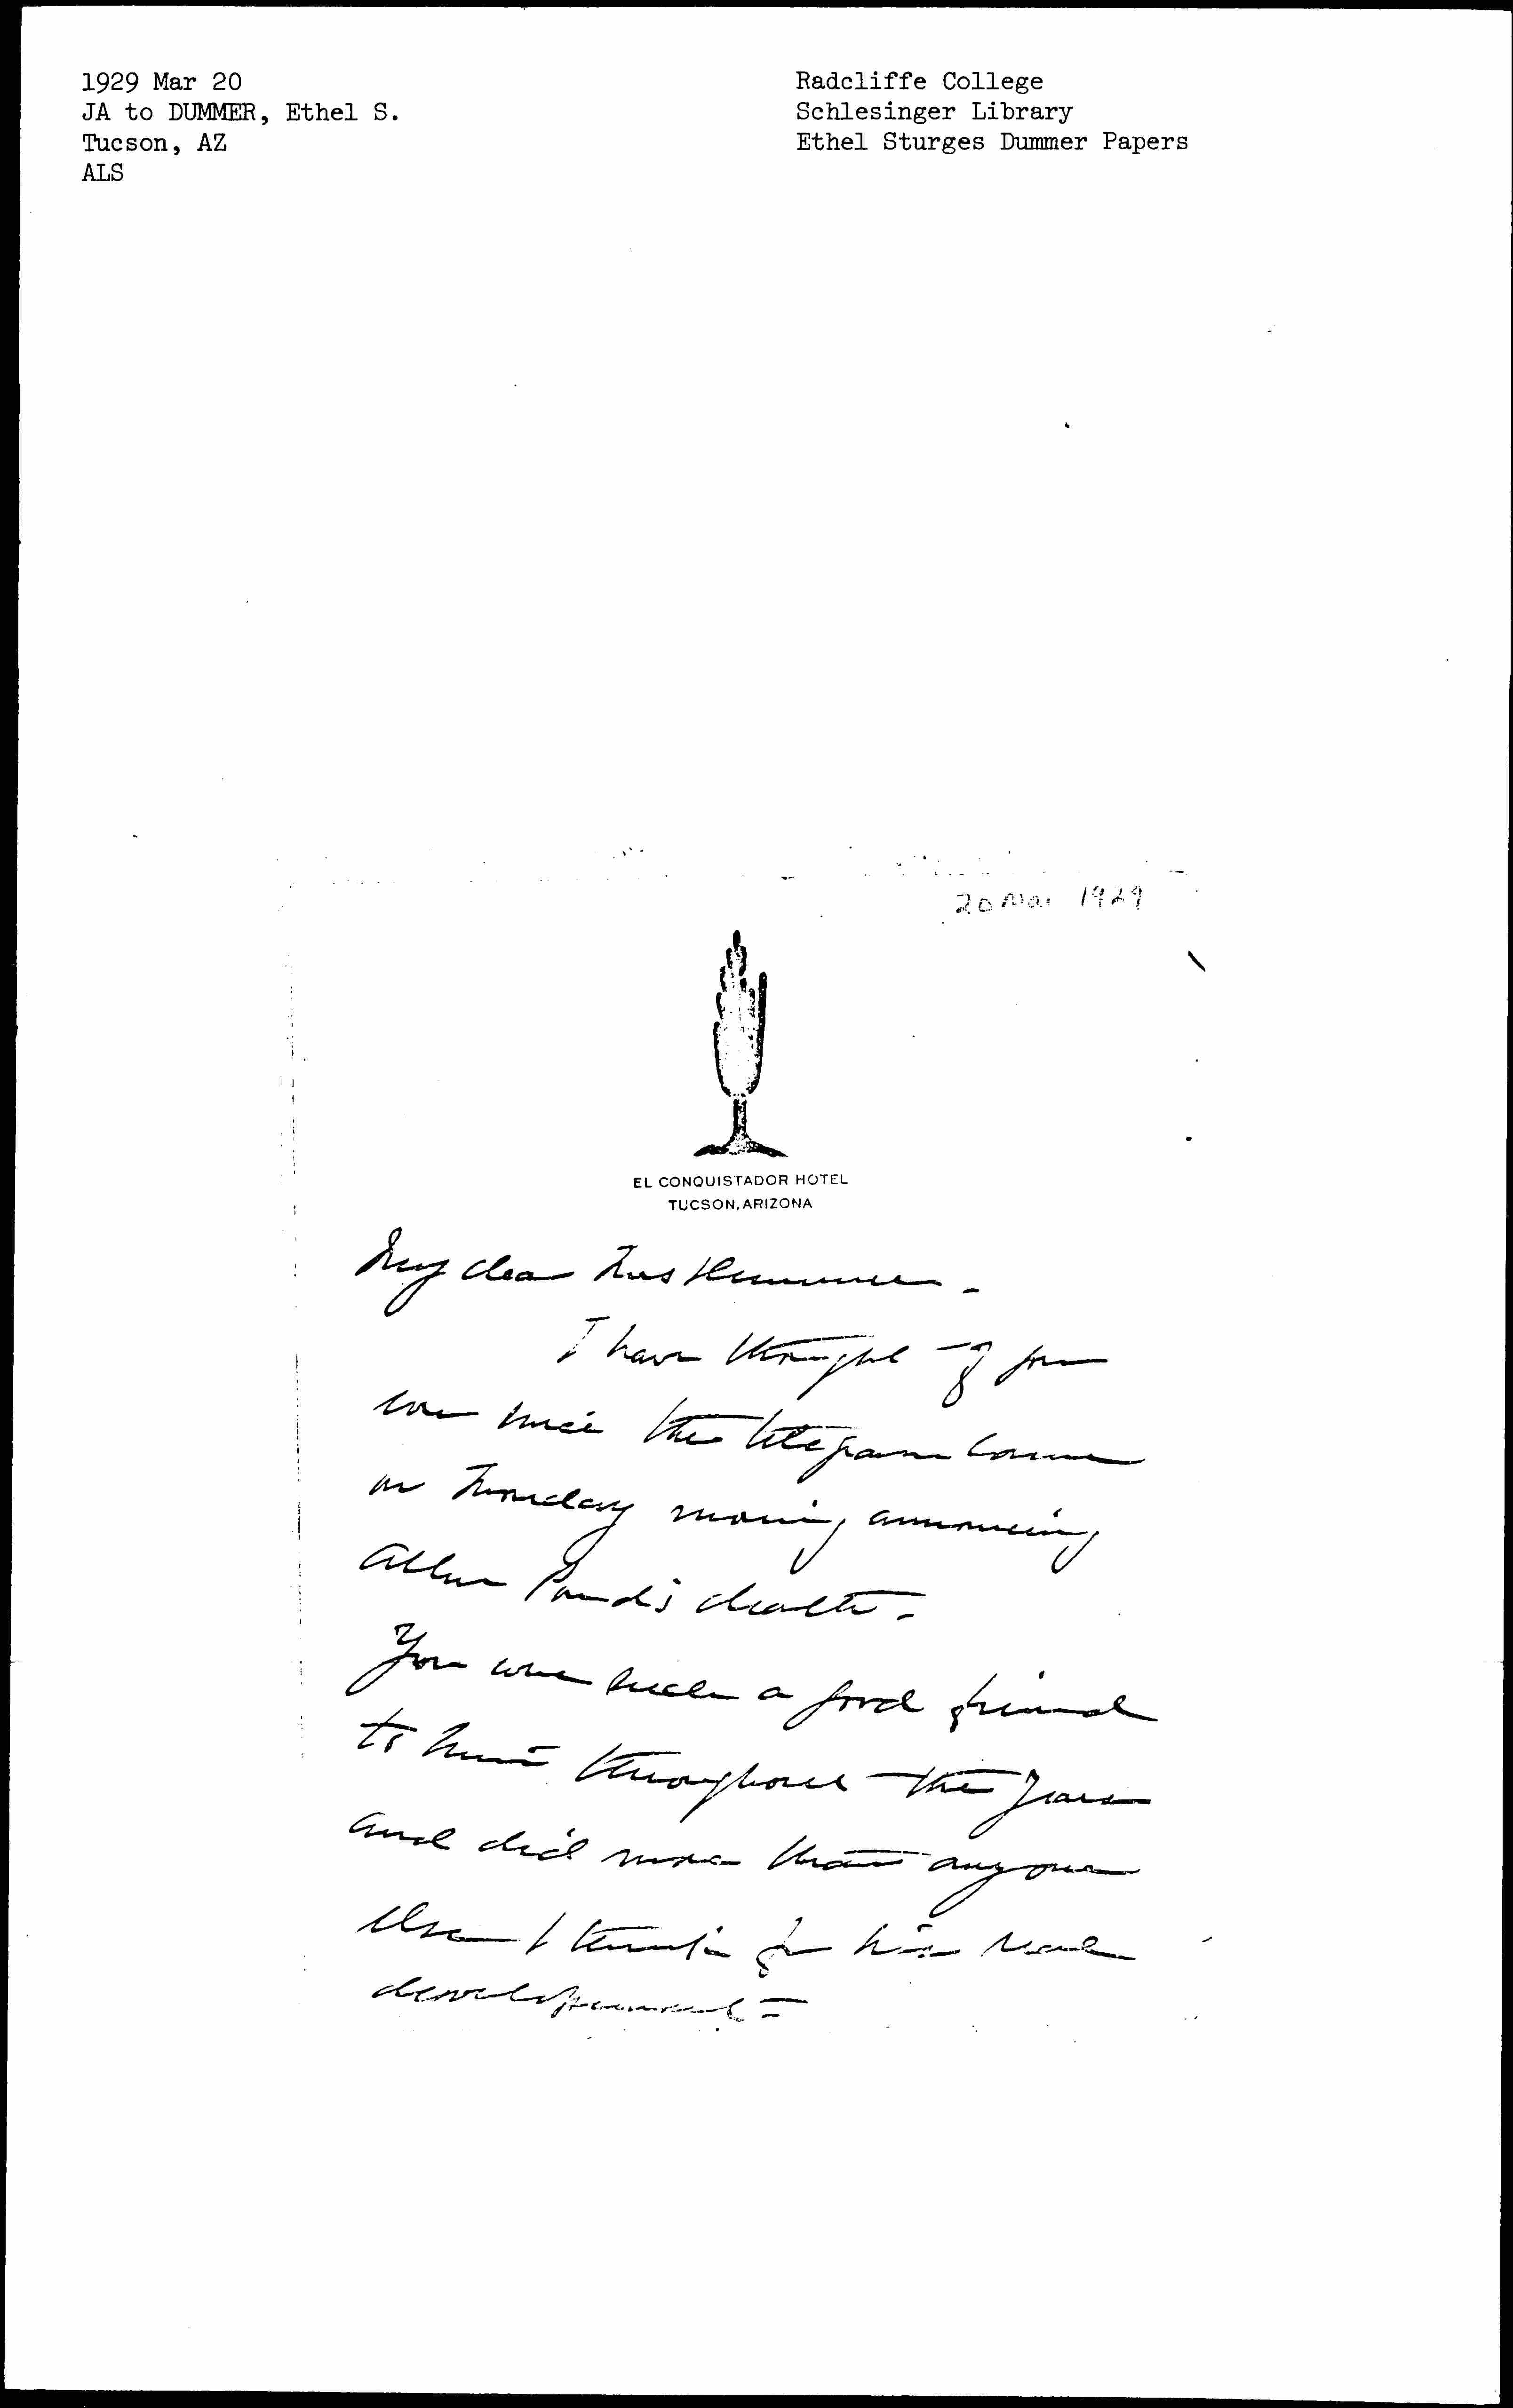 1929 Mar 20
JA to DUMMER, Ethel S.
Tucson, AZ
ALS
Radcliffe College
Schlesinger Library
Ethel Sturges Dummer Papers
20 Mar 1929
EL CONQUISTADOR HOTEL
TUCSON, ARIZONA
My dear Mrs Dummer -
I have thought of you
ever since the telegram came
on Monday morning announcing
Allen Pond's death -
You were such a good friend
to him throughout the years
and did more than anyone
else I think for his real
development -